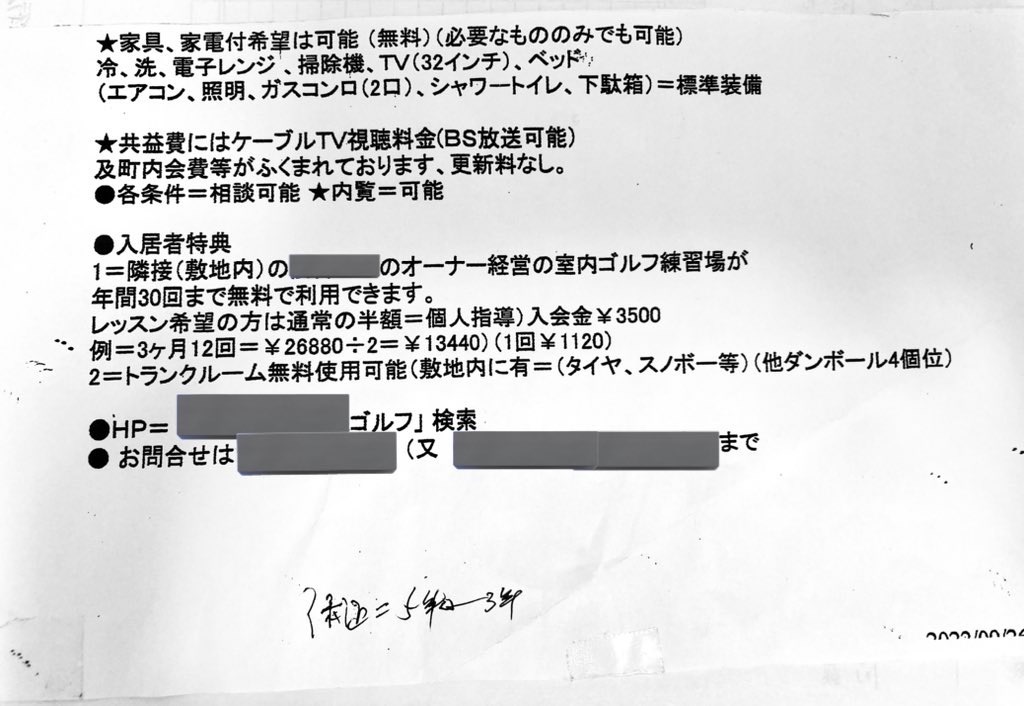 ★家具、家電付希望は可能（無料）（必要なもののみでも可能）
冷、洗、電子レンジ、掃除機、TV（32インチ）、ベッド
（エアコン、照明、ガスコンロ（2口）、シャワートイレ、下駄箱）＝標準装備
★共益費にはケーブルTV視聴料金（BS放送可能）
及町内会費等がふくまれております、更新料なし。
●各条件＝相談可能 ★内覧＝可能
●入居者特典
1＝隣接（敷地内）の のオーナー経営の室内ゴルフ練習場が
年間30回まで無料で利用できます。
レッスン希望の方は通常の半額＝個人指導）入会金￥3500
例＝3ヶ月12回＝￥26880÷2＝￥13440）（1回￥1120）
2＝トランクルーム無料使用可能（敷地内に有＝（タイヤ、スノボー等）（他ダンボール4個位）
●HP＝ ゴルフ」検索
● お問合せは （又 まで
＝5年 3年